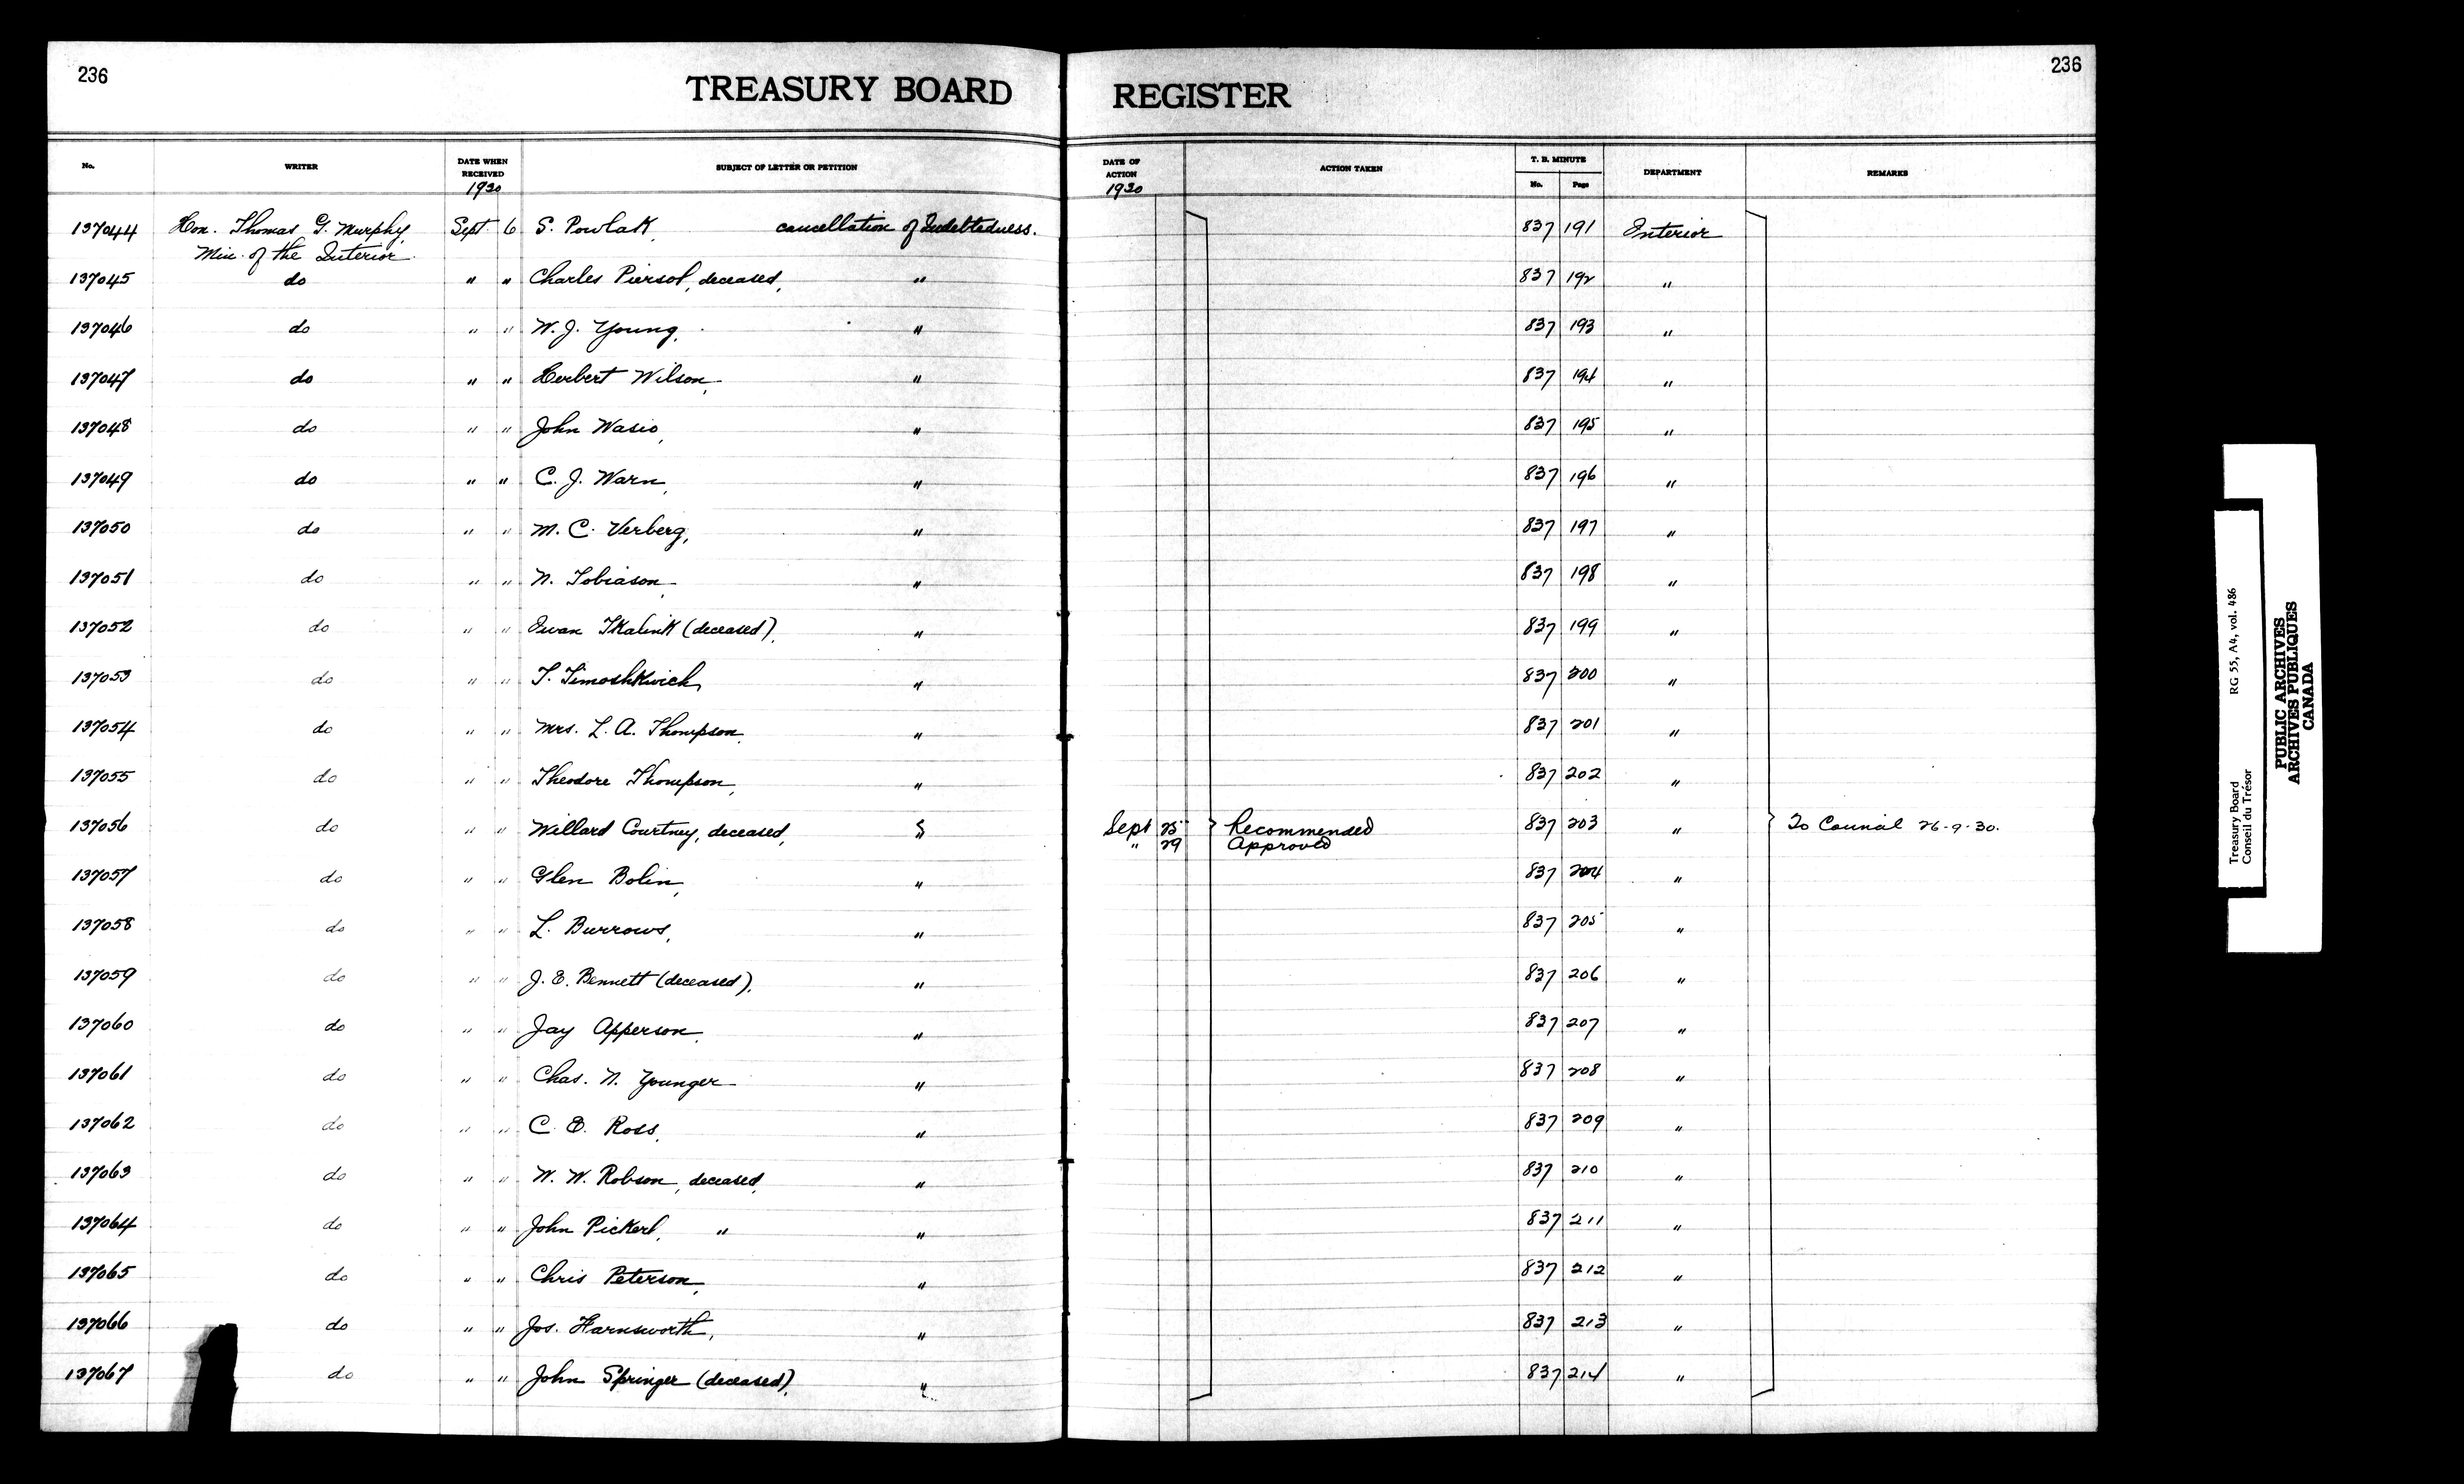 236
TREASURY BOARD REGISTER
236
No. WRITER DATE WHEN RECEIVED 1930 SUBJECT OF LETTER OR PETITION DATE OF ACTION 1930 ACTION TAKEN T. B. MINUTE No. Page DEPARTMENT REMARKS
137044 Hon. Thomas G. Murphy, Sept 6 S. Powlak, cancellation of Indebtedness. 837 191 Interior
Min. of the Interior.
137045 do " " Charles Piersol, deceased, " 837 192 "
137046 do " " W. J. Young, " 837 193 "
137047 do " " Herbert Wilson, " 837 194 "
137048 do " " John Wasio, " 837 195 "
137049 do " " C. J. Warn, " 837 196 "
137050 do " " M. C. Verberg, " 837 197 "
137051 do " " N. Tobiason, " 837 198 "
137052 do " " Iwan Tkalink (deceased), " 837 199 "
137053 do " " T. Timoshkwich, " 837 200 "
137054 do " " Mrs. L. A. Thompson, " 837 201 "
137055 do " " Theodore Thompson, " 837 202 "
137056 do " " Willard Courtney, deceased, " Sept 25 Recommended 837 203 " To Council 26-9-30.
" 29 Approved
137057 do " " Glen Bolin, " 837 204 "
137058 do " " L. Burrows, " 837 205 "
137059 do " " J. E. Bennett (deceased), " 837 206 "
137060 do " " Jay Apperson, " 837 207 "
137061 do " " Chas. N. Younger " 837 208 "
137062 do " " C. E. Ross, " 837 209 "
137063 do " " W. W. Robson, deceased, " 837 210 "
137064 do " " John Pickerl, " " 837 211 "
137065 do " " Chris Peterson, " 837 212 "
137066 do " " Jos. Harnsworth, " 837 213 "
137067 do " " John Springer (deceased), " 837 214 "
Treasury Board RG 55, A4, vol. 486
Conseil du Trésor
PUBLIC ARCHIVES
ARCHIVES PUBLIQUES
CANADA